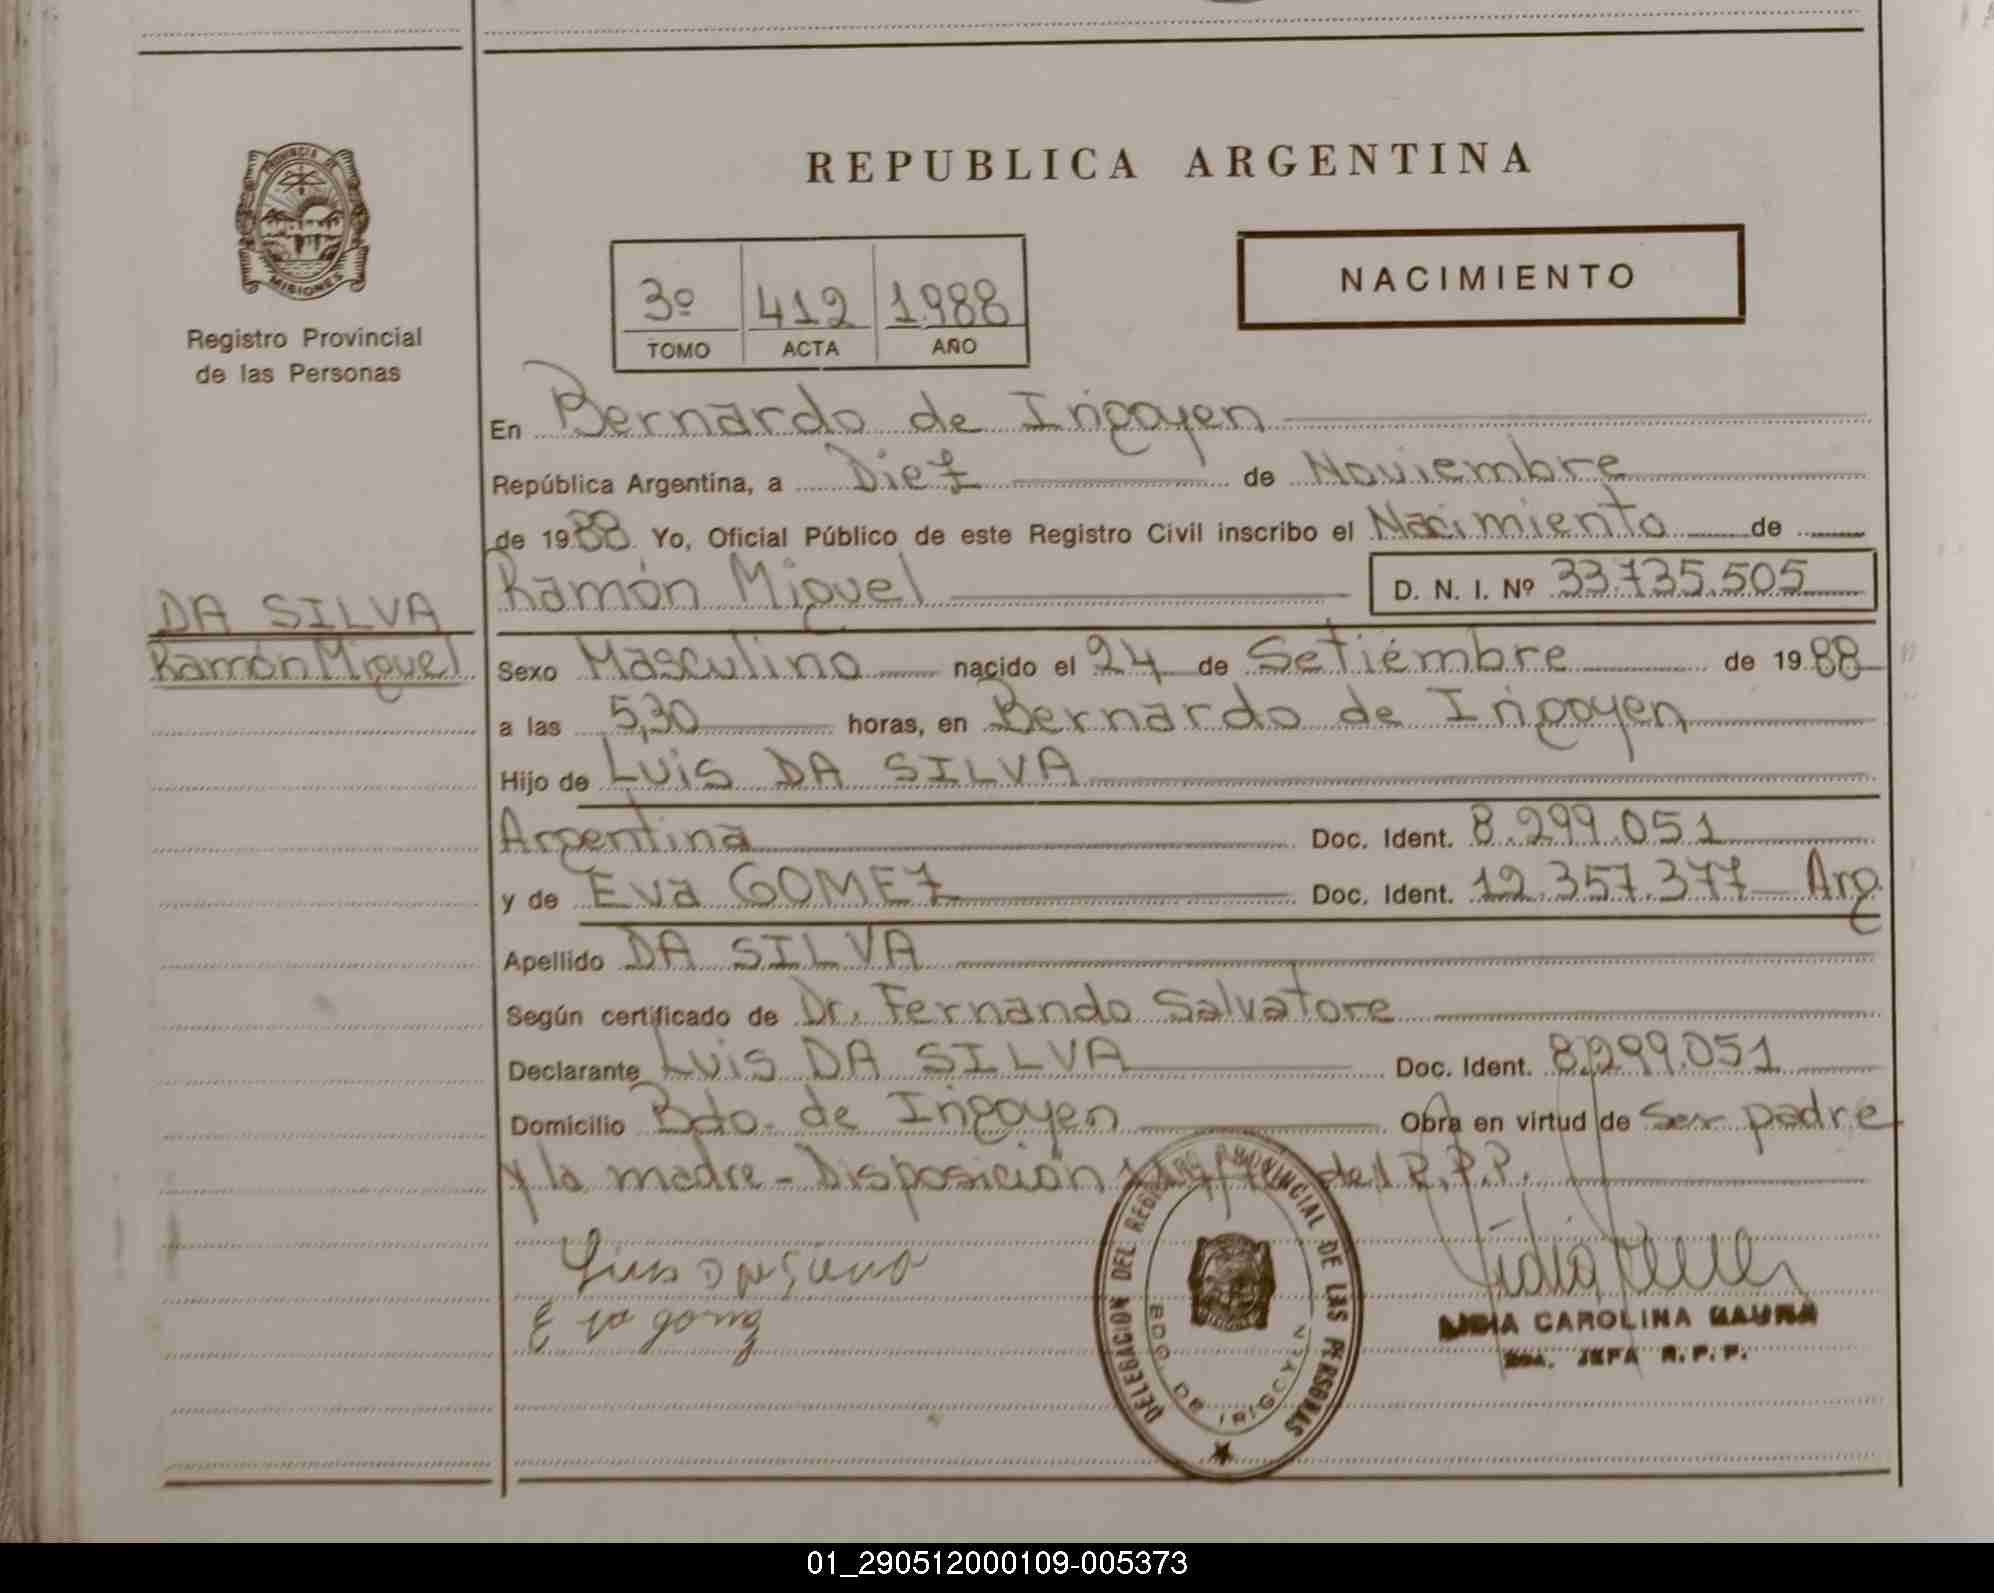 PROVINCIA DE
MISIONES
Registro Provincial
de las Personas
REPUBLICA ARGENTINA
NACIMIENTO
3º 412 1988
TOMO ACTA AÑO
En Bernardo de Irigoyen
República Argentina, a Diez de Noviembre
de 1988 Yo, Oficial Público de este Registro Civil inscribo el Nacimiento de
Ramón Miguel D. N. I. Nº 33.735.505
DA SILVA
Ramón Miguel
Sexo Masculino nacido el 24 de Setiembre de 1988
a las 5,30 horas, en Bernardo de Irigoyen
Hijo de Luis DA SILVA
Argentina Doc. Ident. 8.299.051
y de Eva GOMEZ Doc. Ident. 12.357.377 Arg.
Apellido DA SILVA
Según certificado de Dr. Fernando Salvatore
Declarante Luis DA SILVA Doc. Ident. 8.299.051
Domicilio Bdo. de Irigoyen Obra en virtud de ser padre
y la madre - Disposición del R.P.P.
Eva gomez
DELEGACION DEL REGISTRO PROVINCIAL DE LAS PERSONAS
BDO. DE IRIGOYEN
LIDIA CAROLINA
JEFA R.P.P.
01_290512000109-005373